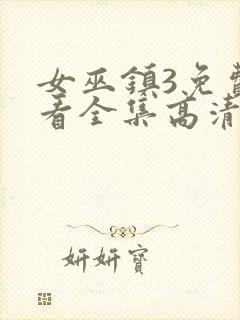 女巫鎮3免費
看全集高清
妍妍寶